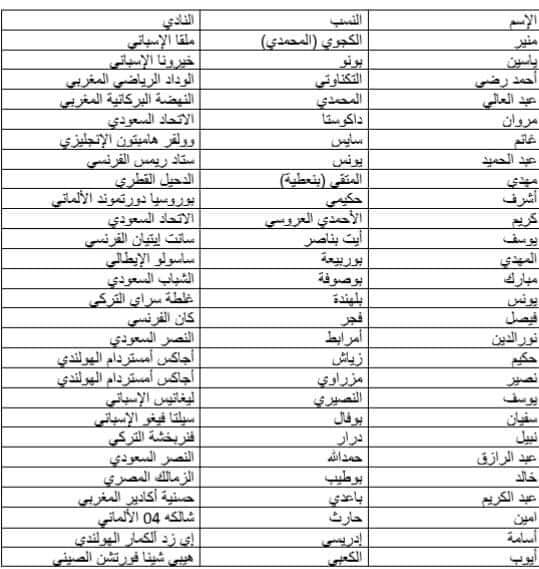 الإسم النسب النادي
منير الكجوي (المحمدي) ملقا الإسباني
ياسين بونو خيرونا الإسباني
أحمد رضى التكناوتي الوداد الرياضي المغربي
عبد العالي المحمدي النهضة البركانية المغربي
مروان داكوستا الاتحاد السعودي
غانم سايس وولفر هامبتون الإنجليزي
عبد الحميد يونس ستاد ريمس الفرنسي
مهدي المتقي (بنعطية) الدحيل القطري
أشرف حكيمي بوروسيا دورتموند الألماني
كريم الأحمدي العروسي الاتحاد السعودي
يوسف أيت بناصر سانت إيتيان الفرنسي
المهدي بوربيعة ساسولو الإيطالي
مبارك بوصوفة الشباب السعودي
يونس بلهندة غلطة سراي التركي
فيصل فجر كان الفرنسي
نورالدين أمرابط النصر السعودي
حكيم زياش أجاكس أمستردام الهولندي
نصير مزراوي أجاكس أمستردام الهولندي
يوسف النصيري ليغانيس الإسباني
سفيان بوفال سيلتا فيغو الإسباني
نبيل درار فنربخشة التركي
عبد الرازق حمدالله النصر السعودي
خالد بوطيب الزمالك المصري
عبد الكريم باعدي حسنية أكادير المغربي
امين حارث شالكه 04 الألماني
أسامة إدريسي إي زد ألكمار الهولندي
أيوب الكعبي هيبي شينا فورتشن الصيني